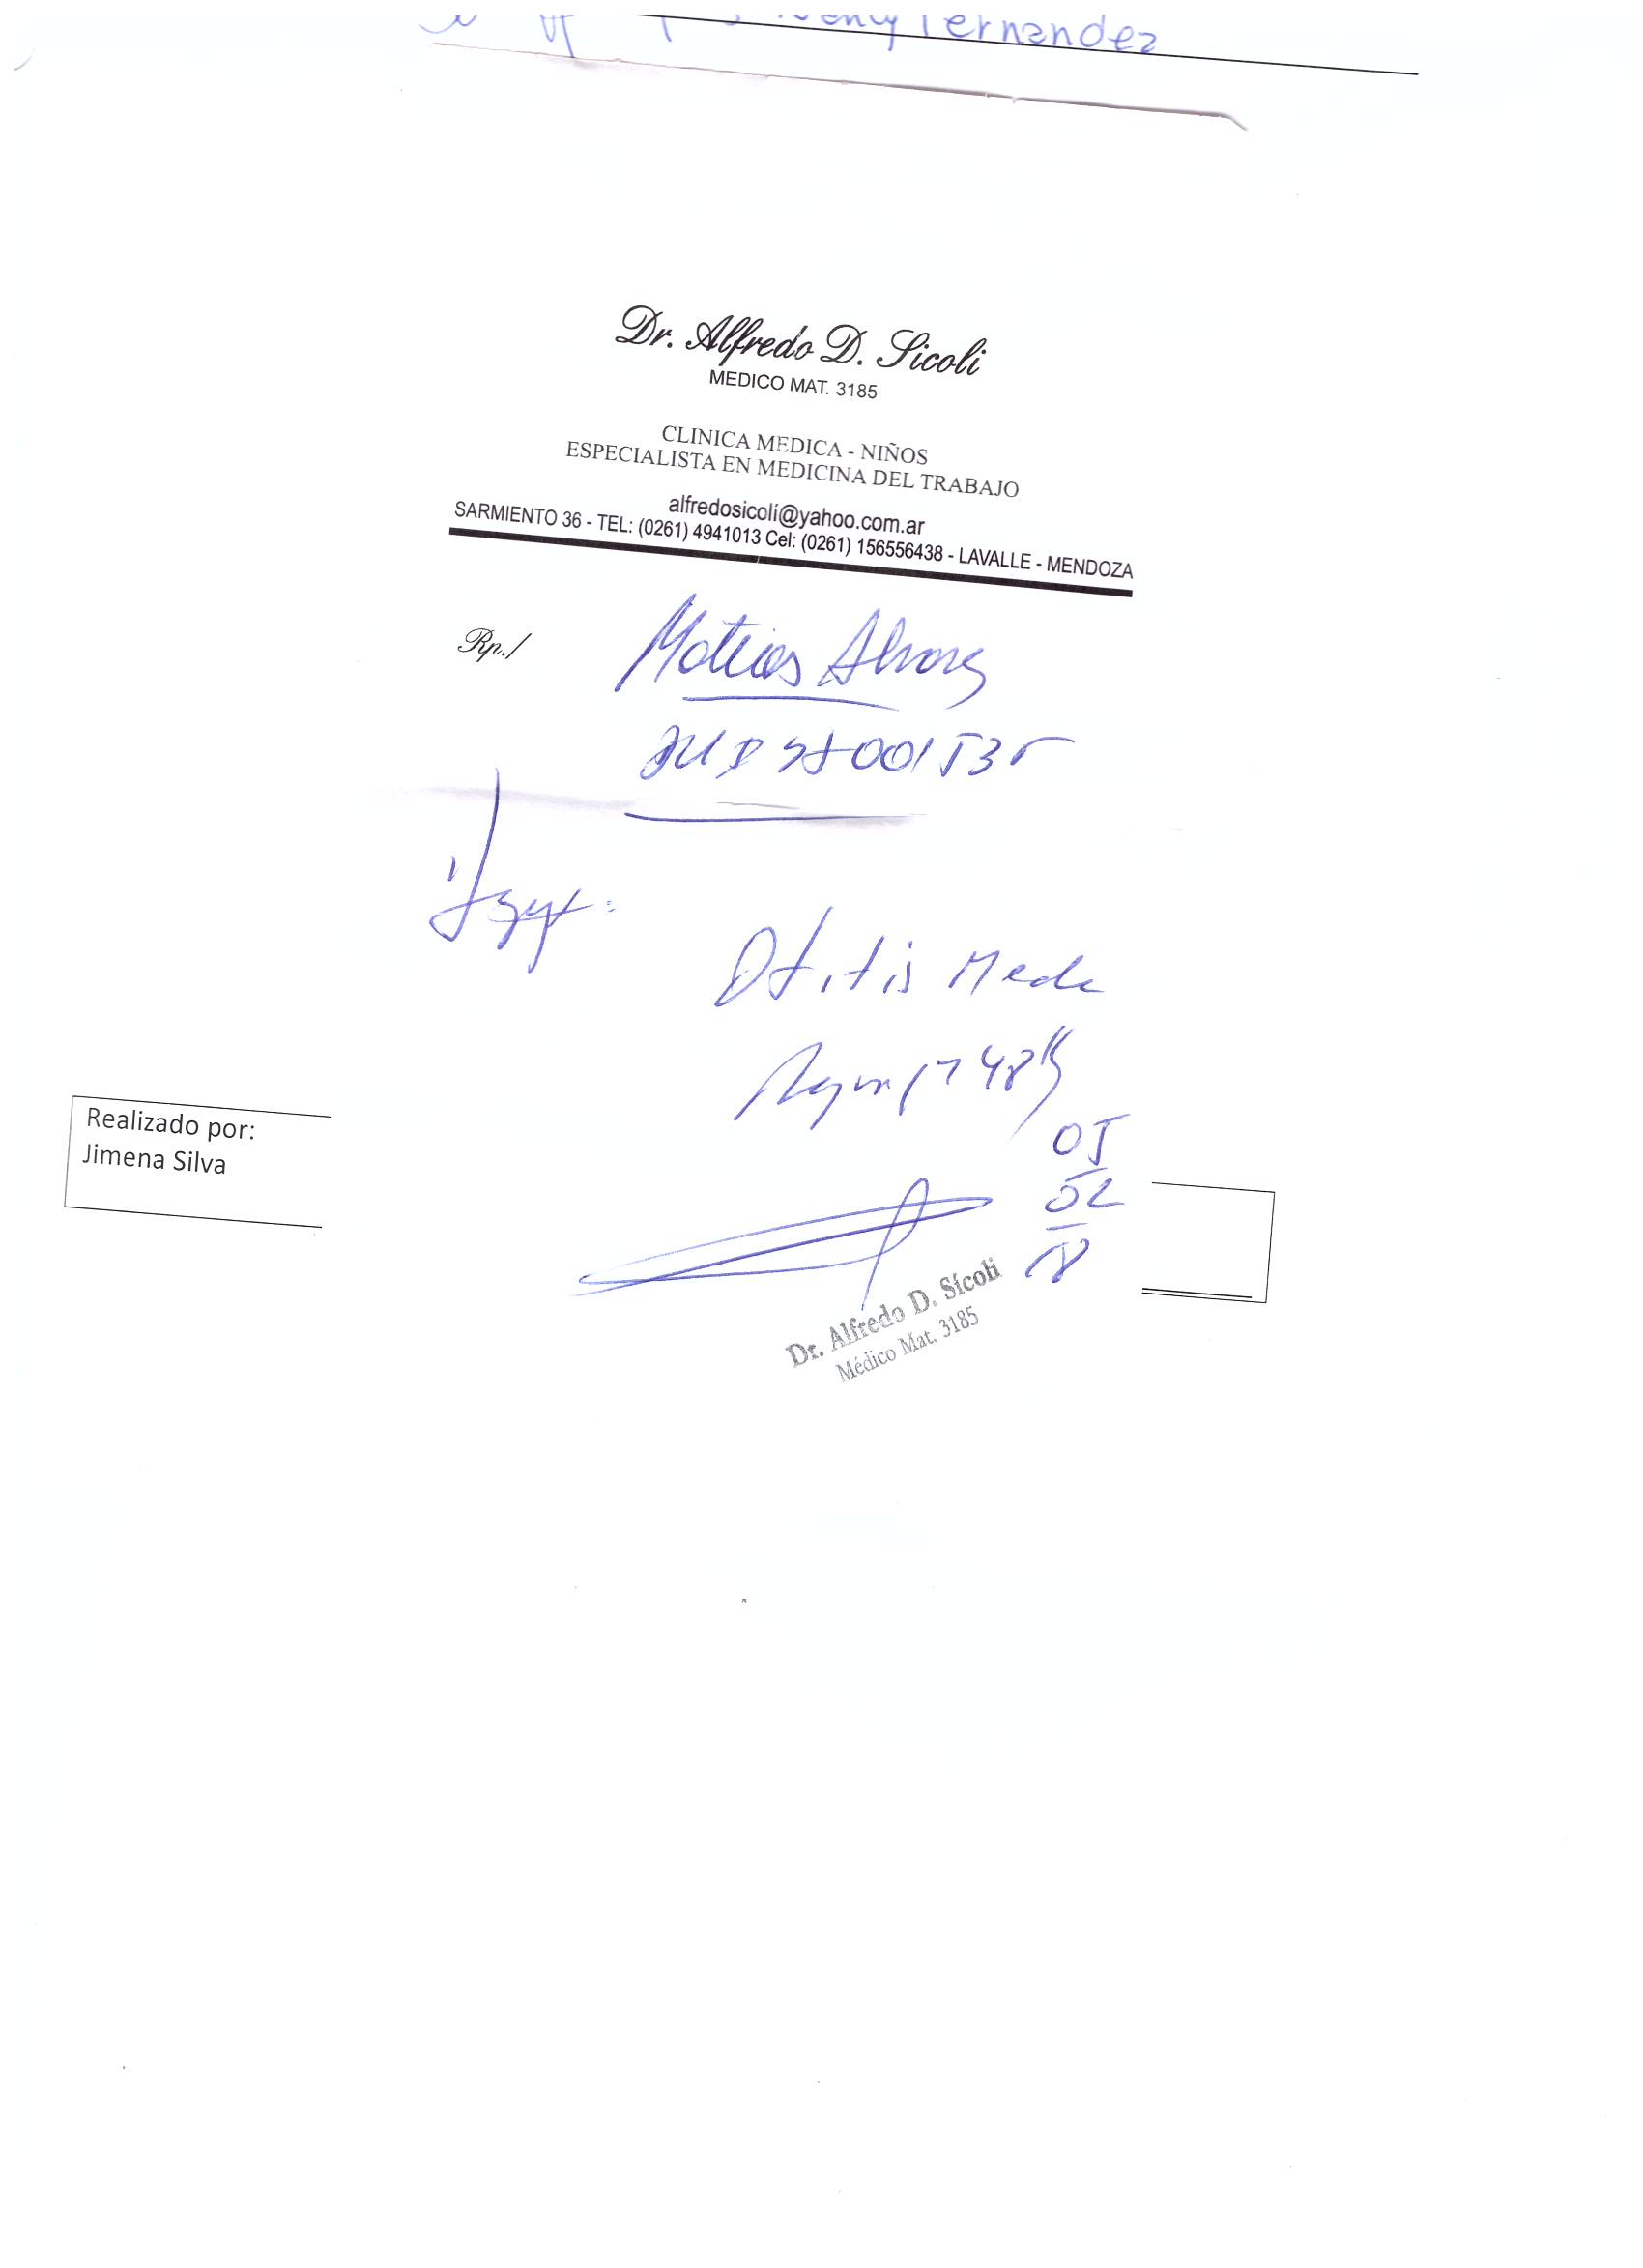 Fernandez
Dr. Alfredo D. Sicoli
MEDICO MAT. 3185
CLINICA MEDICA - NIÑOS
ESPECIALISTA EN MEDICINA DEL TRABAJO
alfredosicoli@yahoo.com.ar
SARMIENTO 36 - TEL: (0261) 4941013 Cel: (0261) 156556438 - LAVALLE - MENDOZA
Rp./
Matias
Otitis Media
48
Realizado por:
Jimena Silva
Dr. Alfredo D. Sícoli
Médico Mat. 3185